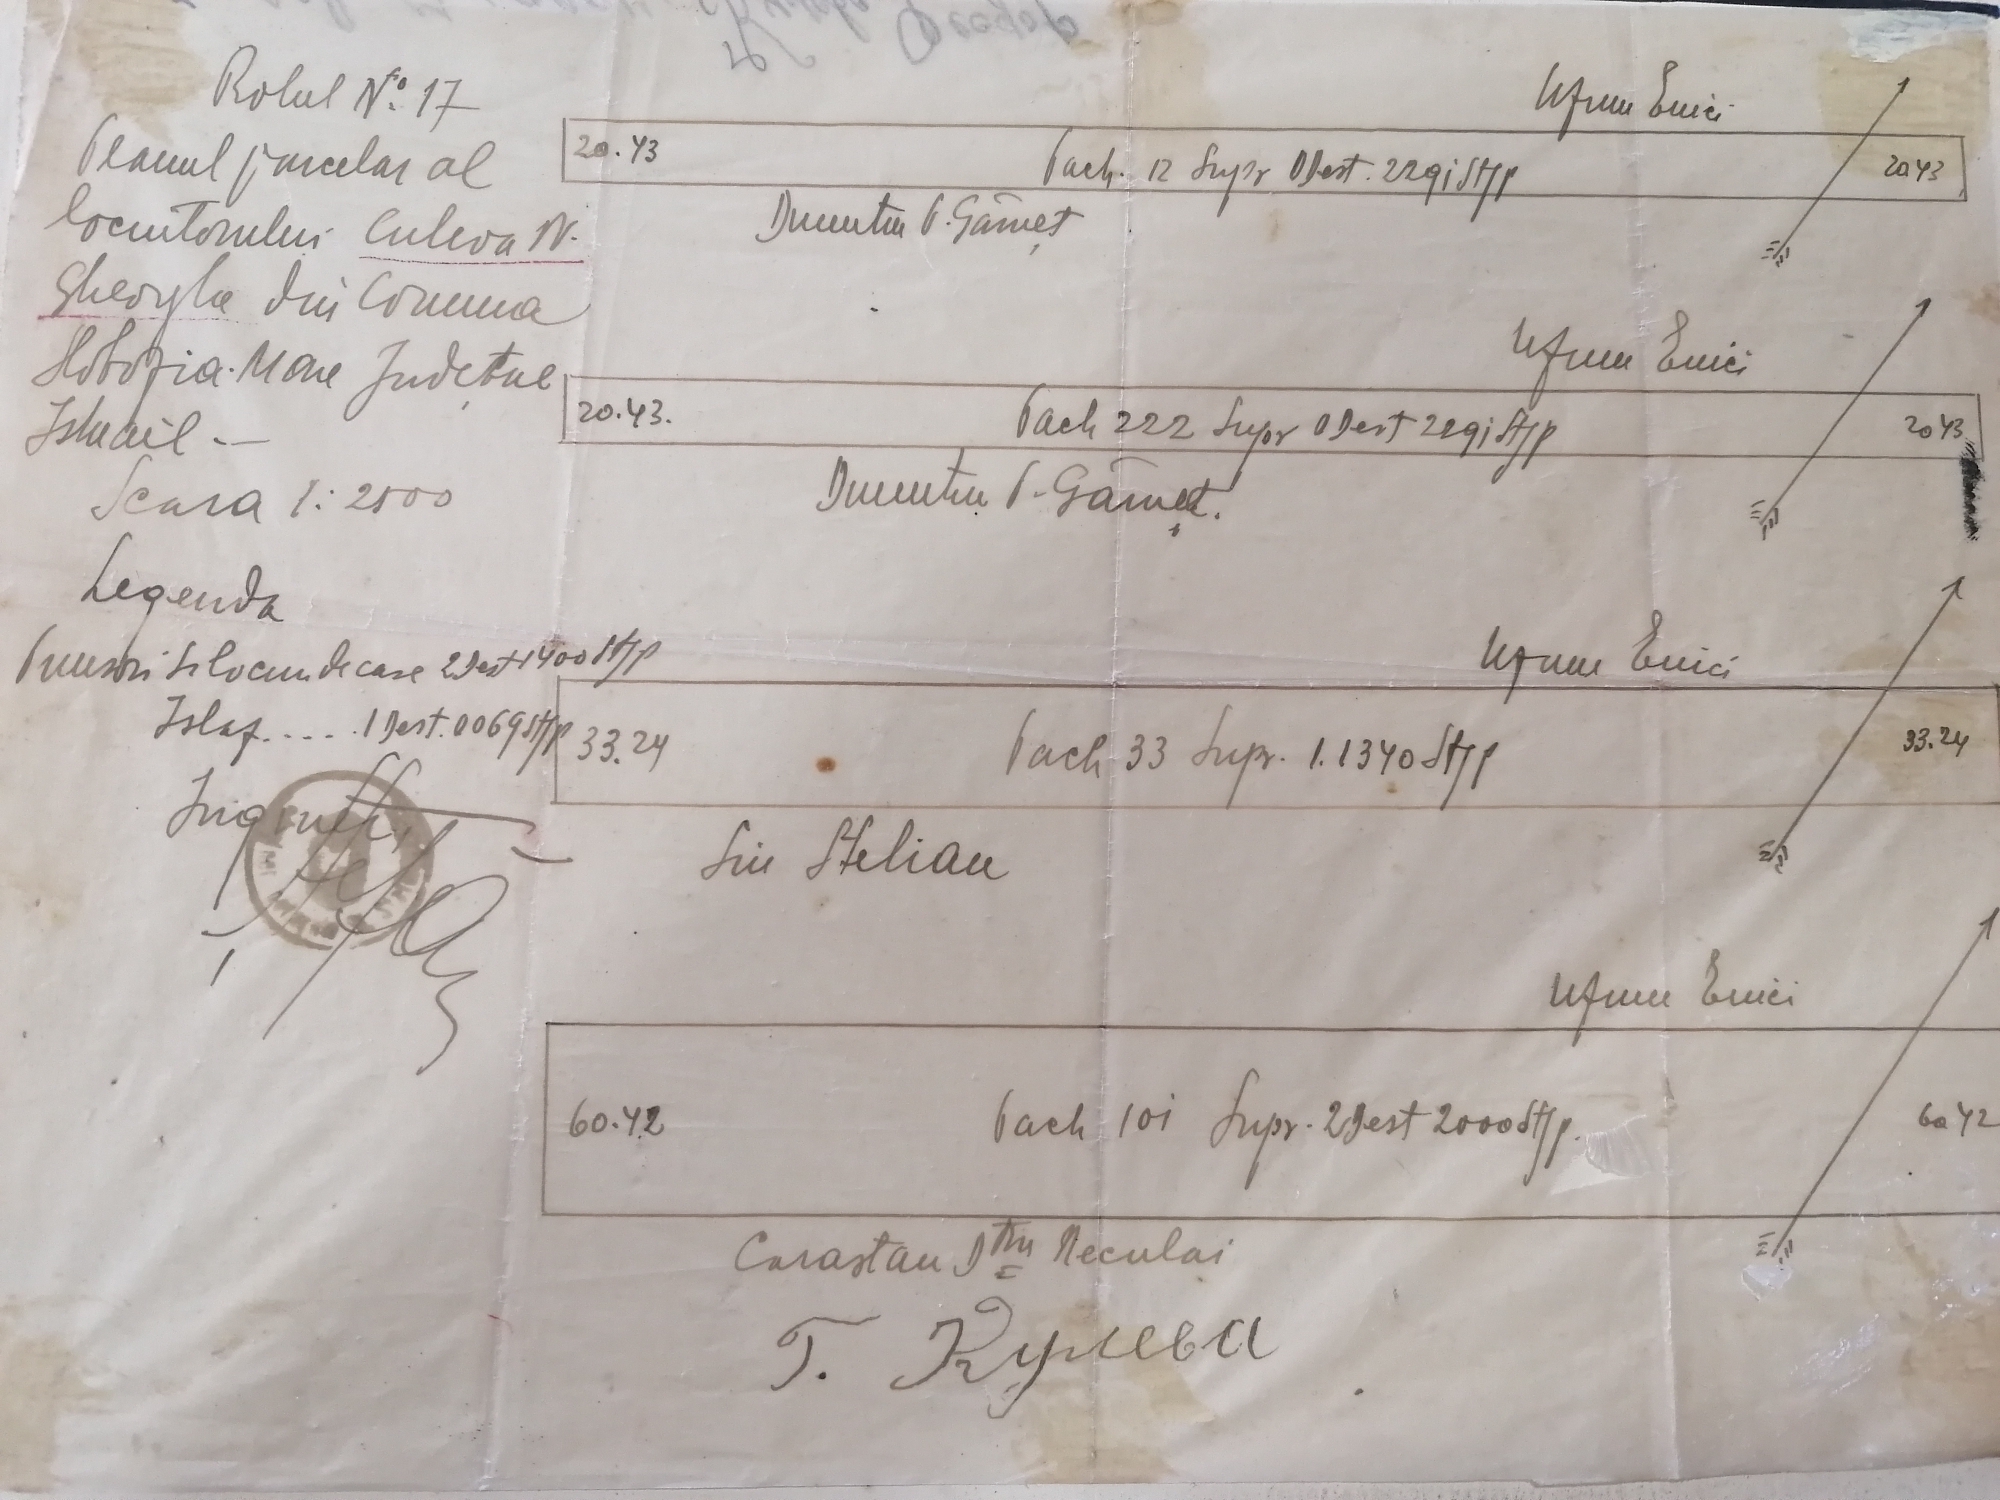 Rolul Nº 17
Planul parcelar al
locuitorului Culeva N.
Gheorghe din Comuna
Slobozia-Mare Județul
Ismail.—
Scara 1:2500
Legenda
Primit si locum de case 2 Dest 1400 Stjp
Islaz..... 1 Dest. 0069 Stjp
Inginer,
Ufim Enici
20.43 Pach. 12 Supr 0 Dest. 2291 Stjp 2043
Dumitru P. Gâmeț
Ufim Enici
20.43. Pach 222 Supr 0 Dest 2291 Stjp 2043
Dumitru P. Gâmeț.
Ufim Enici
33.24 Pach 33 Supr. 1.1340 Stjp 33.24
Sin Stelian
Ufim Enici
60.42 Pach 101 Supr. 2 Dest 2000 Stjp. 6042
Carastan Dtru Neculai
Г. Кулева